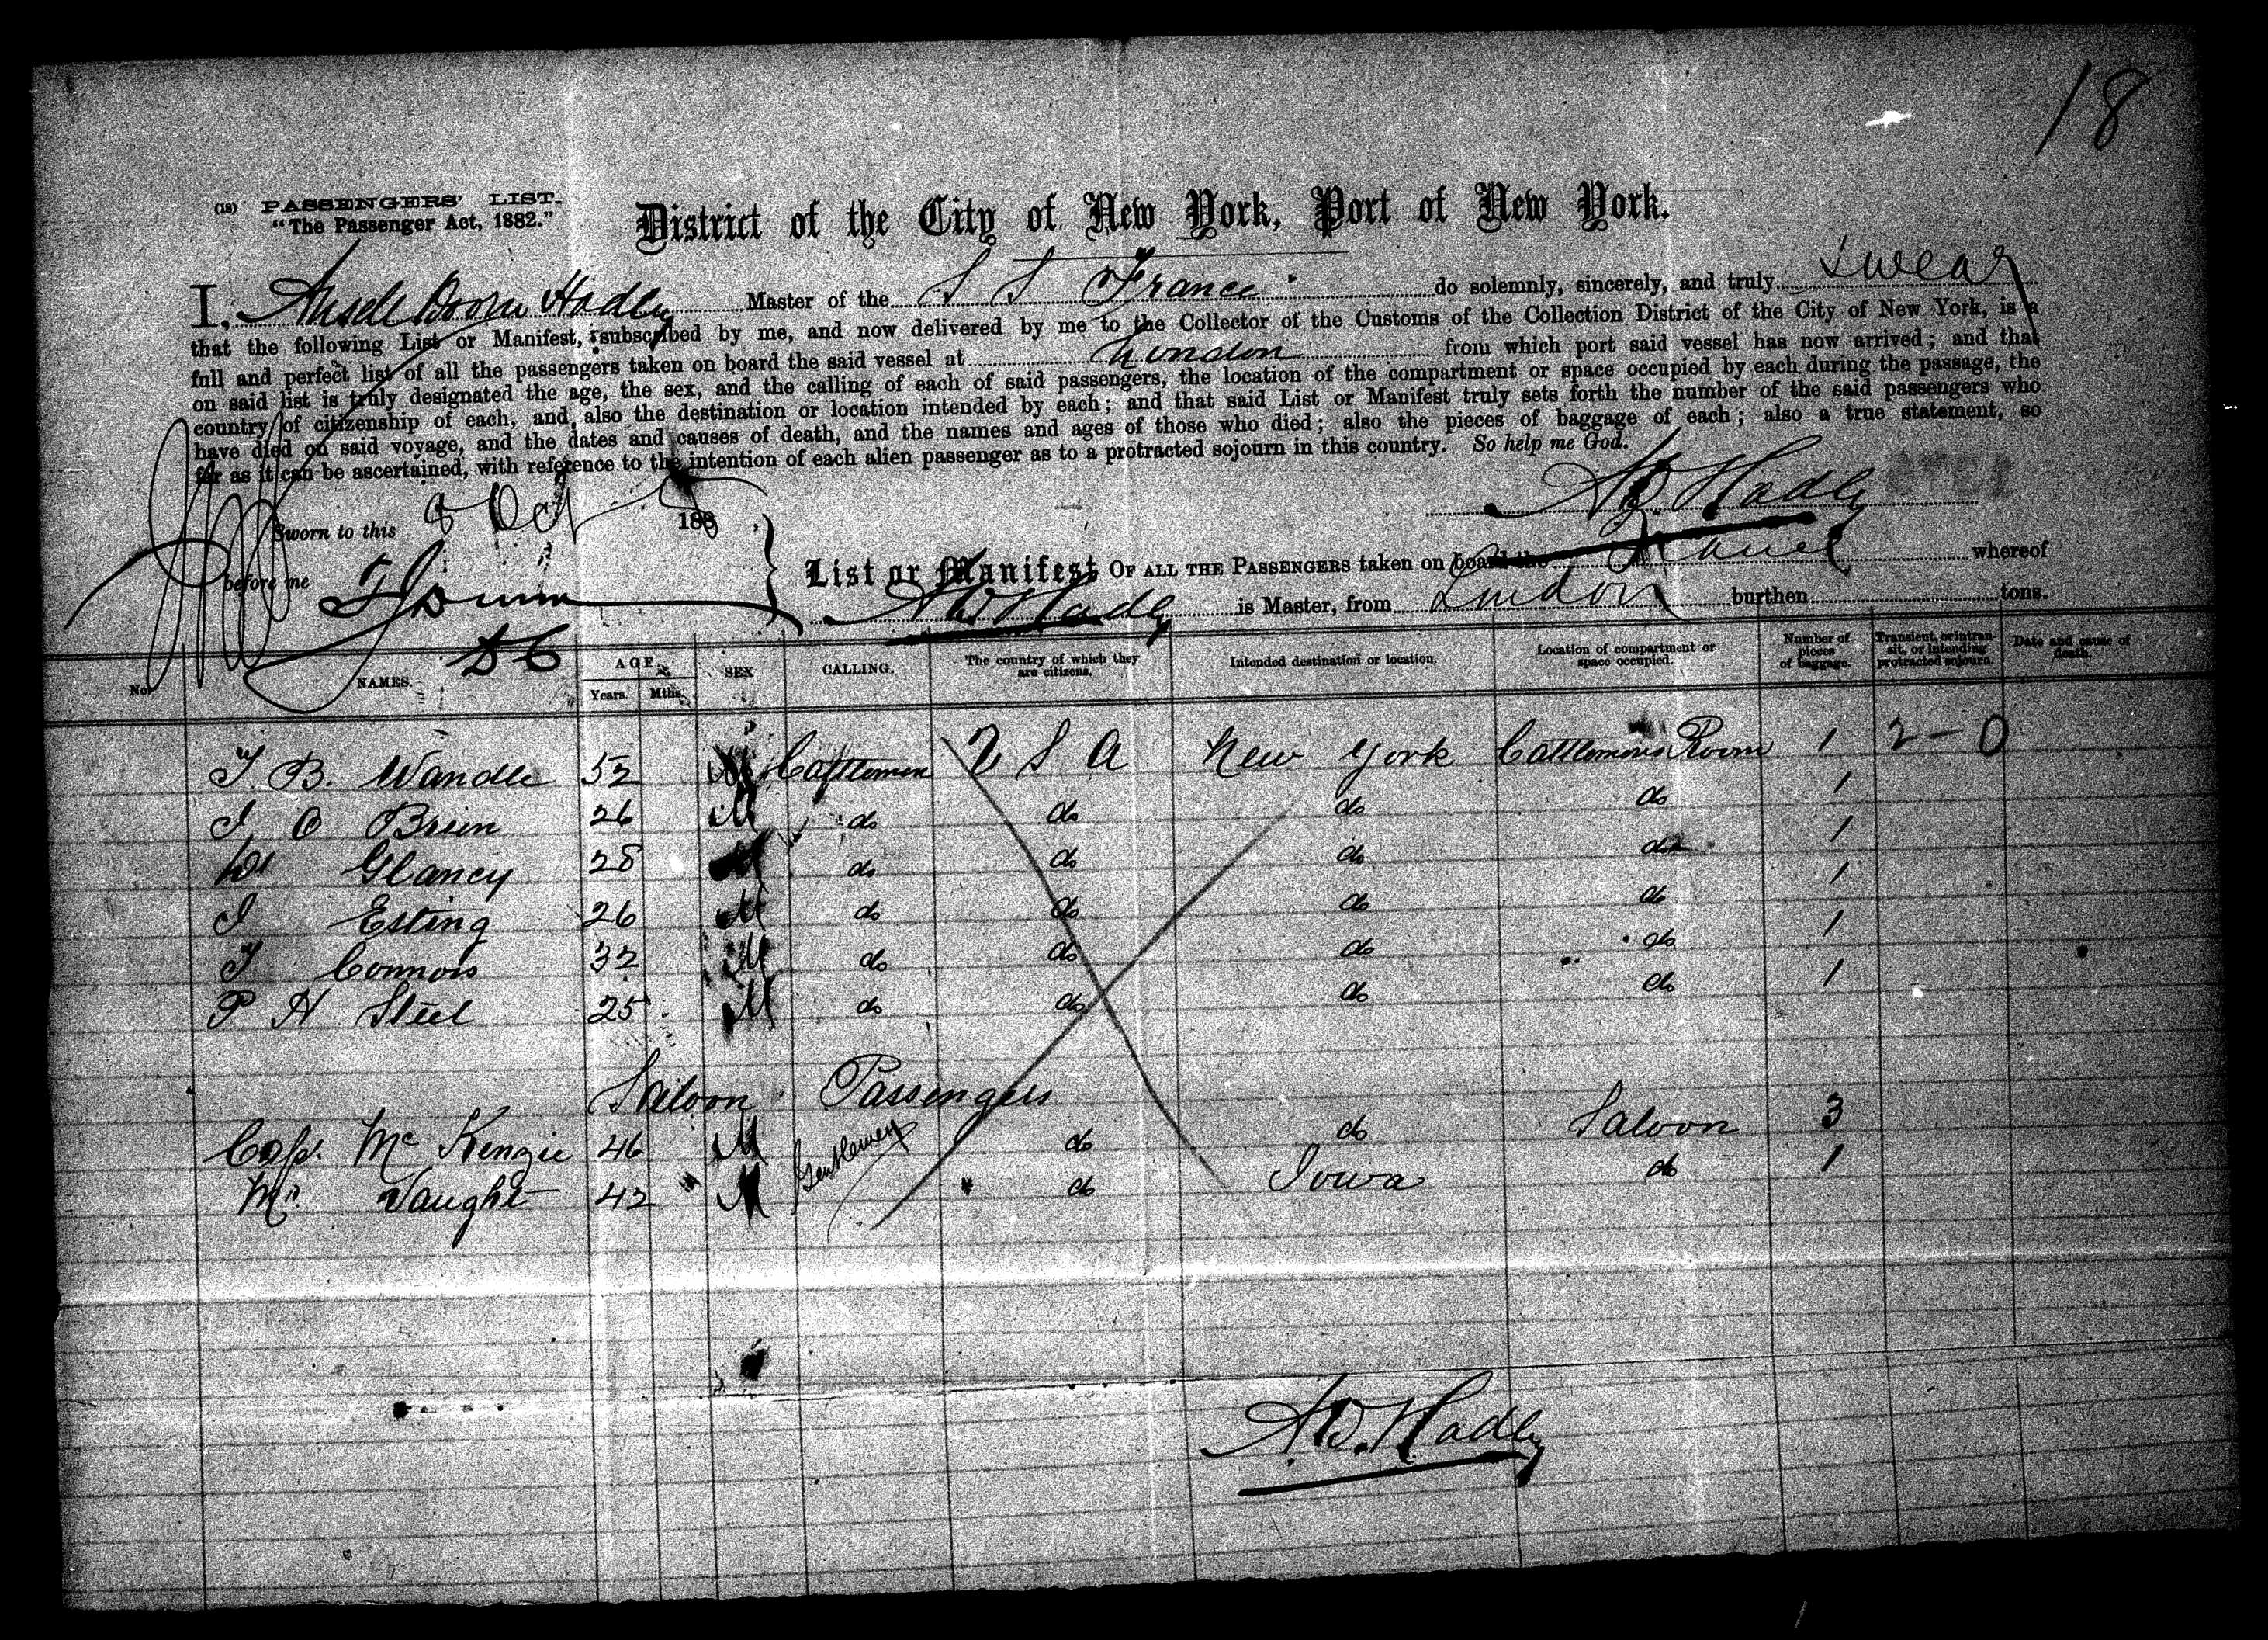 18
(18) PASSENGERS' LIST.
"The Passenger Act, 1882."
District of the City of New York, Port of New York.
I, Ansell Hadley Master of the S S France do solemnly, sincerely, and truly swear
that the following List or Manifest, subscribed by me, and now delivered by me to the Collector of the Customs of the Collection District of the City of New York, is a
full and perfect list of all the passengers taken on board the said vessel at London from which port said vessel has now arrived; and that
on said list is truly designated the age, the sex, and the calling of each of said passengers, the location of the compartment or space occupied by each during the passage, the
country of citizenship of each, and also the destination or location intended by each; and that said List or Manifest truly sets forth the number of the said passengers who
have died on said voyage, and the dates and causes of death, and the names and ages of those who died; also the pieces of baggage of each; also a true statement, so
far as it can be ascertained, with reference to the intention of each alien passenger as to a protracted sojourn in this country. So help me God.
A D. Hadley
Sworn to this 8 Oct 188
before me
List or Manifest OF ALL THE PASSENGERS taken on board the France whereof
A D Hadley is Master, from London burthen tons.
D C
No. NAMES. AGE. Years. Mths. SEX CALLING. The country of which they are citizens. Intended destination or location. Location of compartment or space occupied. Number of pieces of baggage. Transient, or in transit, or intending protracted sojourn. Date and cause of death.
T B. Wandle 52 M Cattlemen U S A New York Cattlemens Room 1 2 - 0
J O Brien 26 M do do do do 1
Wm Glancy 28 M do do do do 1
J Esting 26 M do do do do 1
T Connors 32 M do do do do 1
P H Steel 25 M do do do do 1
Saloon Passengers
Cap. Mc Kenzie 46 M Gentlemen do do Saloon 3
Mr. Vaught 42 M do Iowa do 1
A D. Hadley